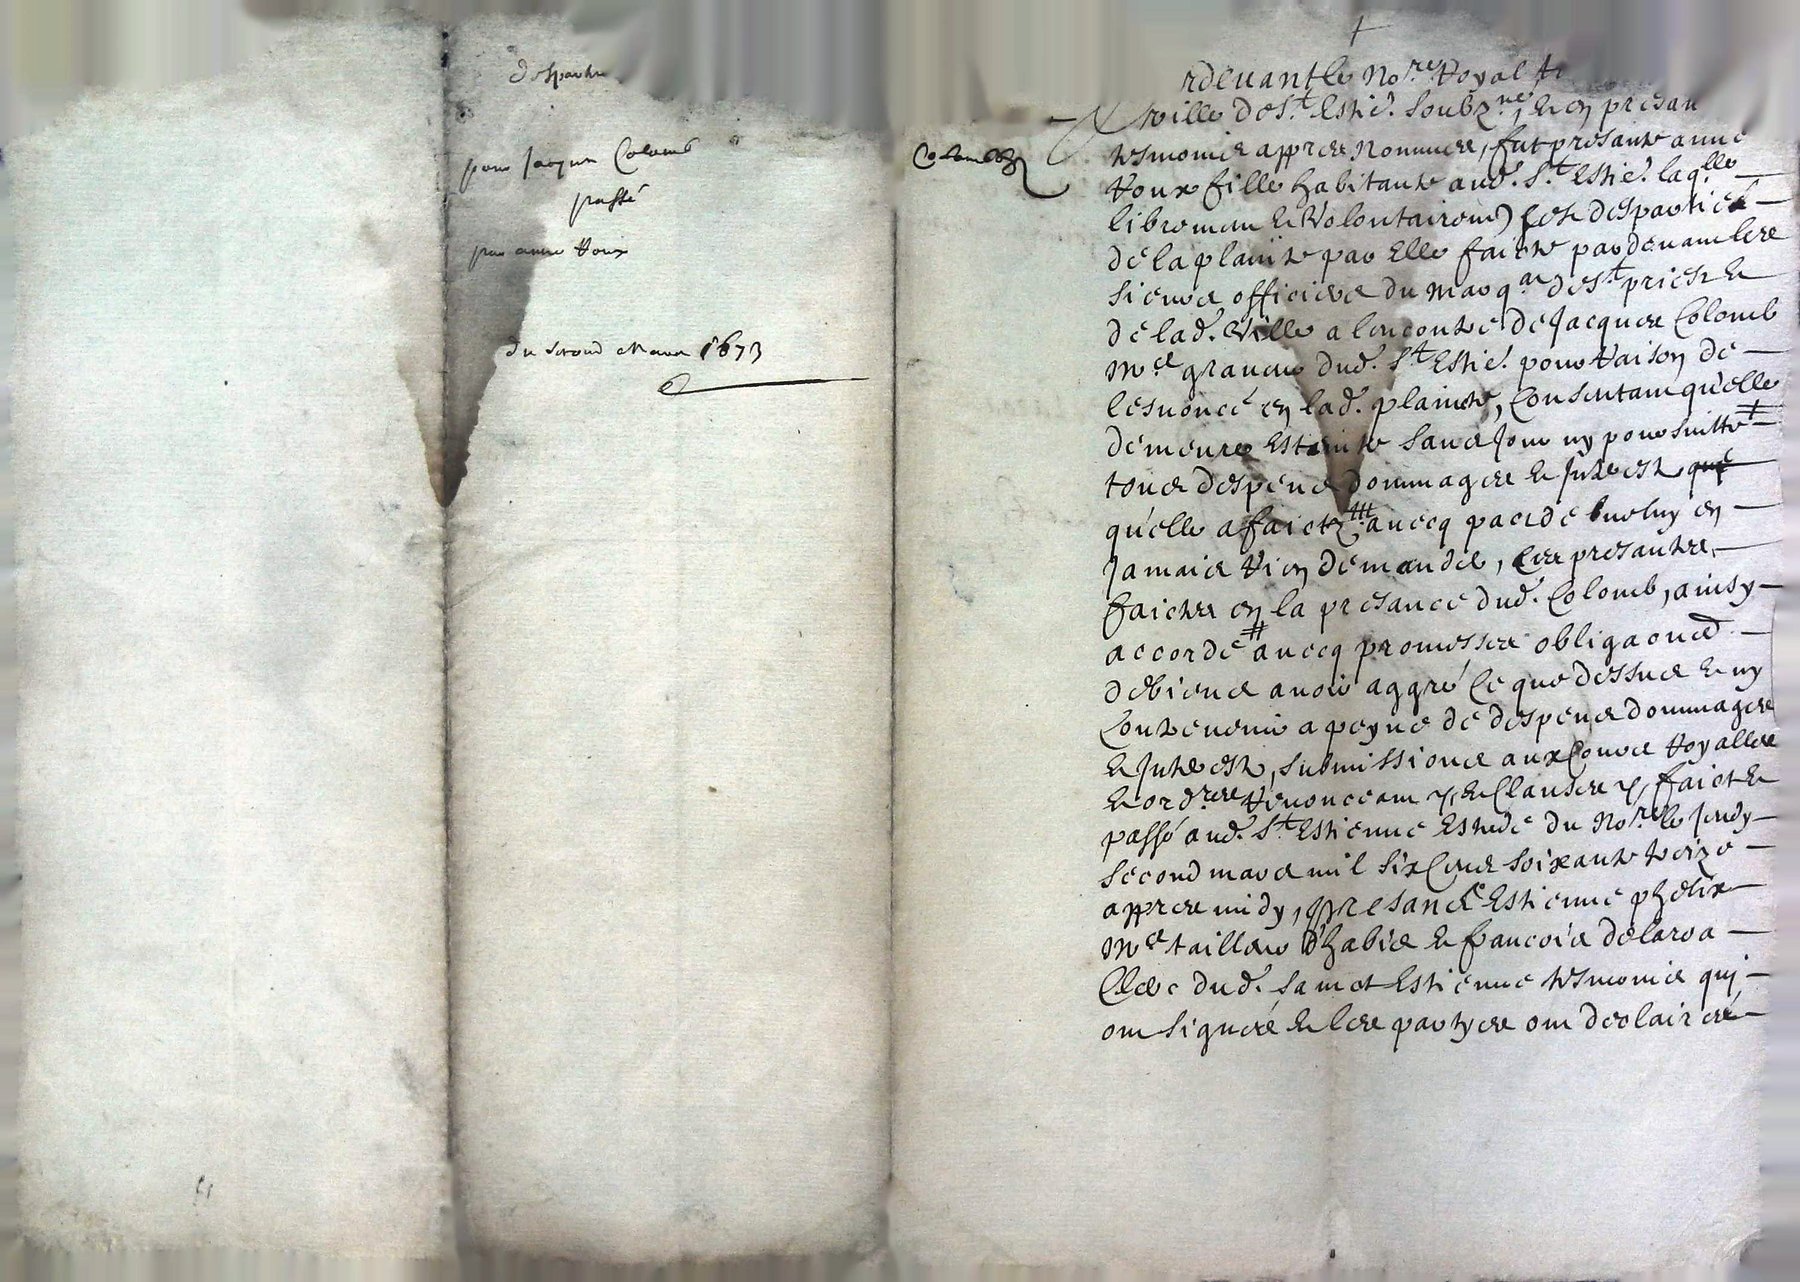 despartie
pour Jacques Colomb
passé
par anne Roux
du second Mars 1673
Colomb
rdevant le No.re Royal
ville de S.t Estie. soubz.né, & en presan
tesmoins appres nommes, fut presante anne
Roux fille habitante aud. S.t Estie. laq.lle
librement & volontairem) sest despartie
de la plainte par elle faicte pardevant les
sieurs officiers du marq.at de S.t priest &
de lad. ville a lencontre de Jacques Colomb
m.e graveur dud. S.t Estie. pour raison de
lesnoncé en lad. plainte, Consentant quelle
demeure esteinte sans Jour ny poursuitte
tous despens dommages & Interest que
quelle a faictz avecq pacte de ne luy en
Jamais rien demander, Ces presantes
faictes en la presance dud. Colomb, ainsy
accordé avecq promesses obligaons
de biens avoir aggré Ce que dessus & ny
Contrevenir a peyne de despens dommages
& Interest, submissions aux Cours Royalles
& ord.res Renonceant & Clauses faict &
passé aud. S.t Estienne Estude du No.re le Jeudy
second mars mil six Cens soixante treize
appres midy, presans Estienne phelix
M.e tailleur d'habis & francois delaroa
Clerc dud. sainct Estienne tesmoins qui
ont signés & les partyes ont desclairé